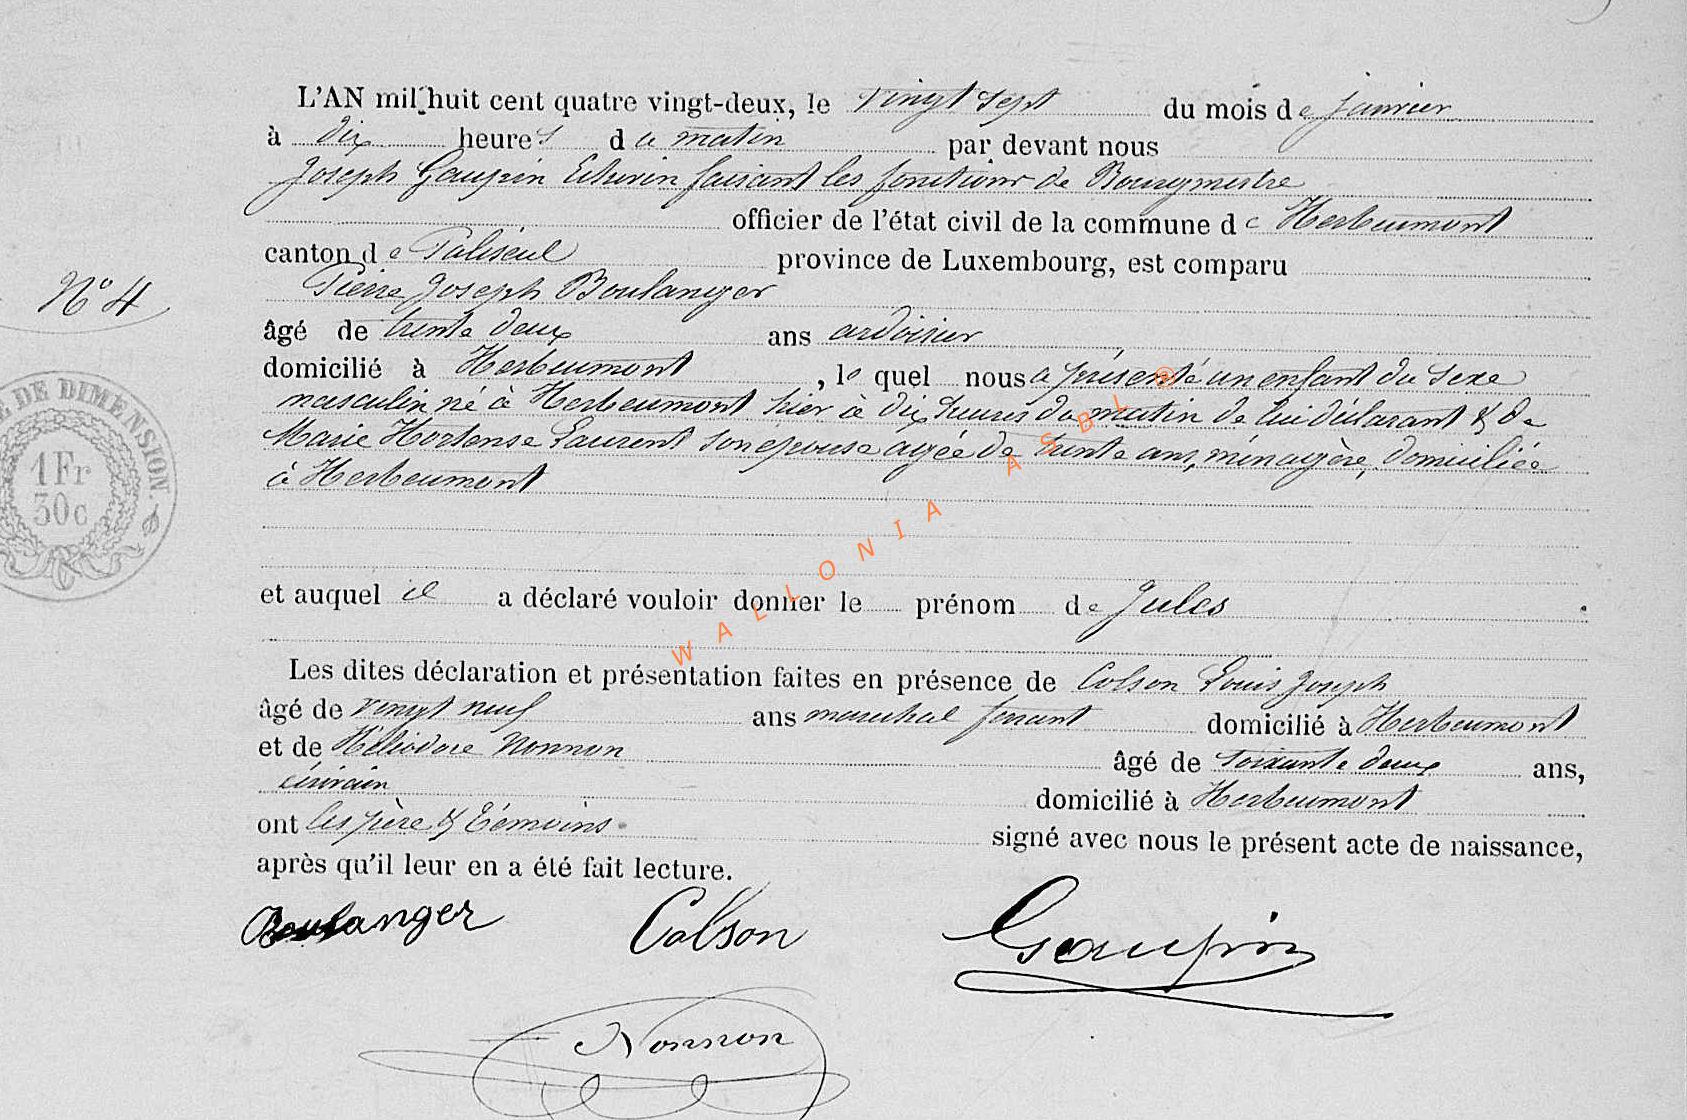 L'AN mil huit cent quatre vingt-deux, le vingt sept du mois de janvier
à dix heures du matin par devant nous
Joseph Gaupin Echevin faisant les fonctions de Bourgmestre
officier de l'état civil de la commune de Herbeumont
canton de Paliseul province de Luxembourg, est comparu
Pierre Joseph Boulanger
N° 4
âgé de trente deux ans ardoisier
domicilié à Herbeumont, lequel nous a présenté un enfant du sexe
masculin né à Herbeumont hier à dix heures du matin de lui déclarant & de
Marie Hortense Laurent son épouse agée de trente ans, ménagère, domiciliée
à Herbeumont
E DE DIMENSION.
1Fr
30c
WALLONIA ASBL ®
et auquel il a déclaré vouloir donner le prénom de Jules.
Les dites déclaration et présentation faites en présence de Colson Louis Joseph
âgé de vingt neuf ans maréchal ferrant domicilié à Herbeumont
et de Héliodore Nonnon âgé de soixante deux ans,
écrivain domicilié à Herbeumont
ont les père & témoins signé avec nous le présent acte de naissance,
après qu'il leur en a été fait lecture.
Boulanger Colson Gaupin
Nonnon